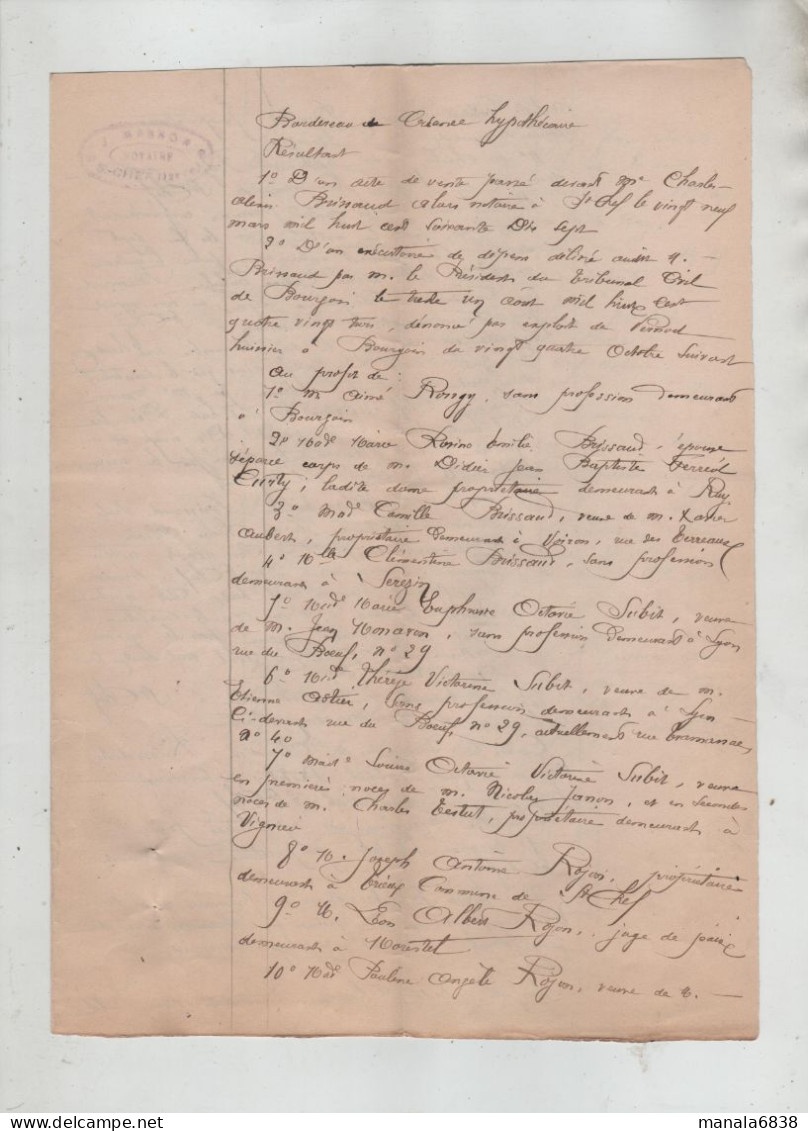 Bordereau de Créance hypothécaire
Résultant
1º D'un acte de vente passé devant Mº Charles
alexis Brissaud alors notaire à St Chef le vingt neuf
mars mil huit cent soixante Dix sept
2º D'un exécutoire de dépens délivré audit M.
Brissaud par m. le Président du Tribunal Civil
de Bourgoin le trente un août mil huit cent
quatre vingt trois, dénoncé par exploit de
huissier à Bourgoin du vingt quatre Octobre suivant
au profit de :
1º M aimé Rongy, sans profession demeurant
à Bourgoin
2º Made Marie Rosine Emilie Brissaud, épouse
séparée corps de M. Didier Jean Baptiste
Curty, ladite dame propriétaire demeurant à Ruy
3º Made Camille Brissaud, veuve de M. Xavier
Aubert, propriétaire demeurant à Voiron, rue des Terreaux
4º Mlle Clémentine Brissaud, sans profession
demeurant à Serezin
5º Made Marie Euphrosine Octavie Subit, veuve
de M. Jean Monavon, sans profession demeurant à Lyon
rue du Boeuf, nº 29
6º Made Thérèse Victorine Subit, veuve de M.
Etienne Astier, sans profession demeurant à Lyon
Ci-devant rue du Boeuf, nº 29, actuellement rue Tramassac,
nº 40
7º Made Louise Octavie Victorine Subit, veuve
en premières noces de M. Nicolas Janon, et en secondes
noces de M. Charles Testut, propriétaire demeurant à
Vignieu
8º M. Joseph Antoine Rojon, propriétaire
demeurant à Trieux Commune de St Chef
9º M. Léon Albert Rojon, juge de paix
demeurant à Morestel
10º Made Pauline Angèle Rojon, veuve de M.
NOTAIRE
manala6838